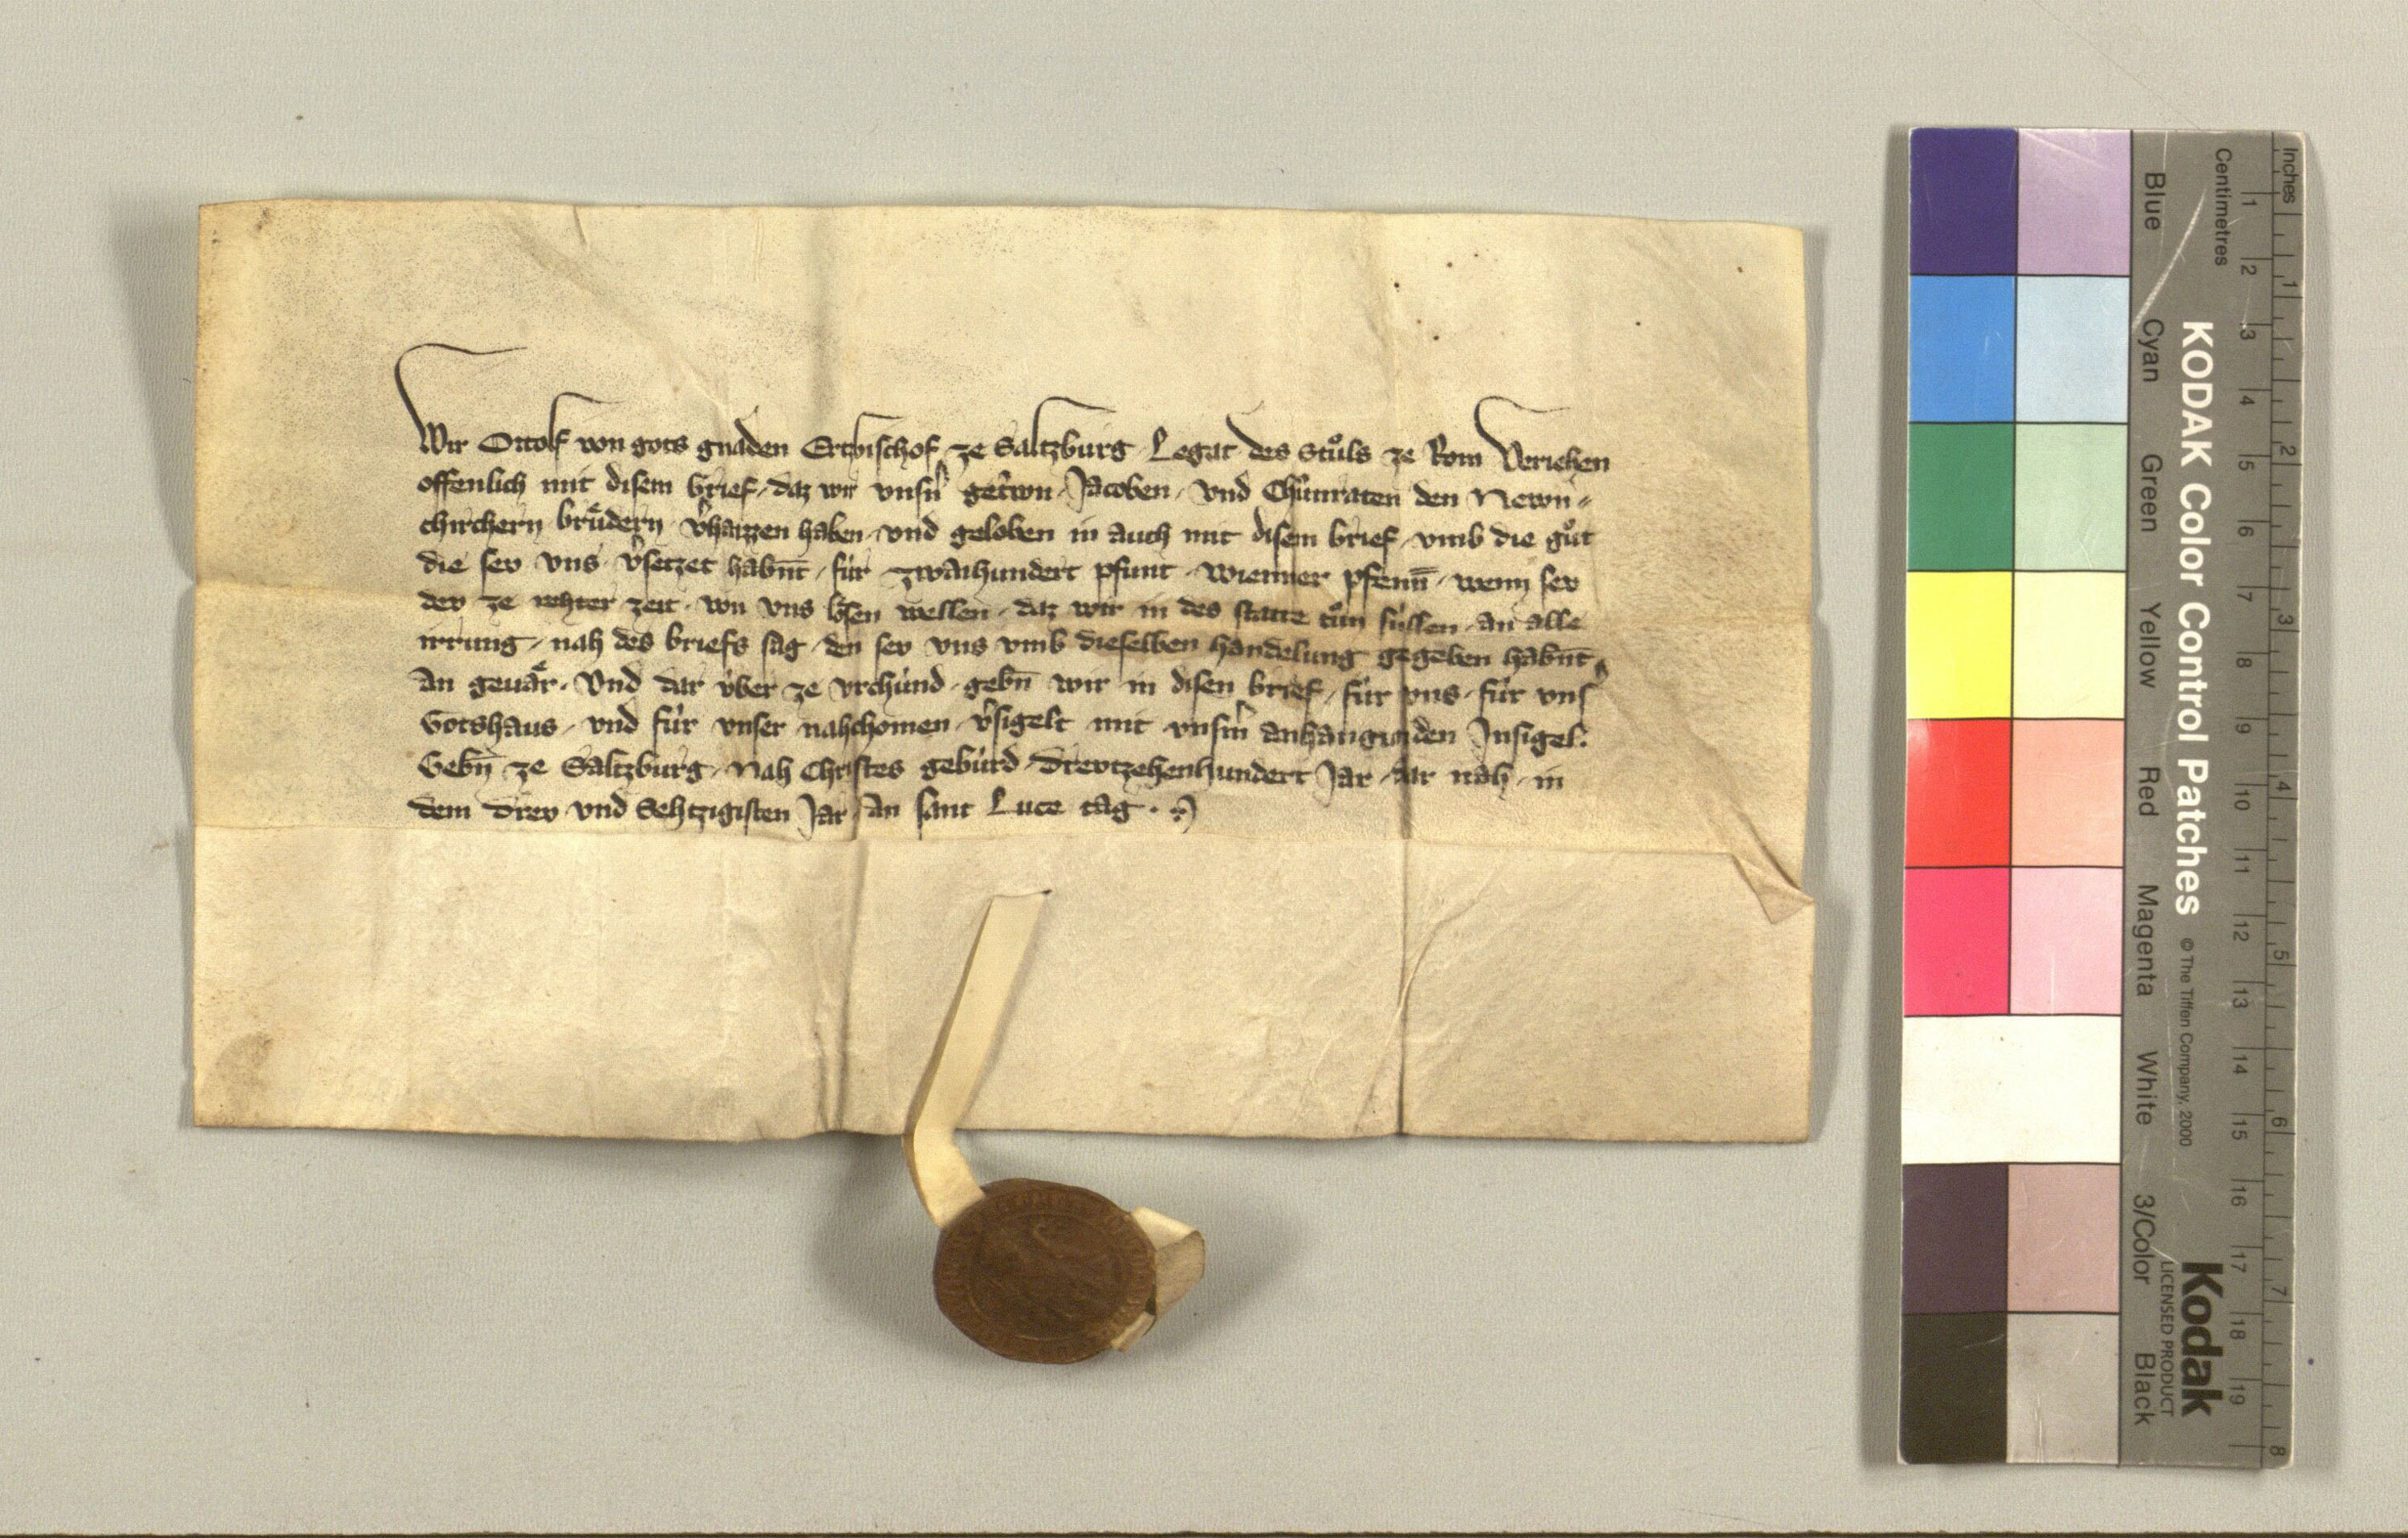 Wir Ortolf von gots gnaden Ertzbischof ze Saltzburg Legat des Stůls ze Rom Veriehen
offenlich mit disem brief daz wir vnsn̄ getrwn Jacoben vnd Chůnraten den Newn-
chirchern brůdern v̾haizzen haben vnd geloben in auch mit disem brief vmb die gůt
die sev vns v̾setzet habnt für zwaihundert pfunt wienner pfenn̄ wenn sev
dev ze rehter zeit von vns lösen wellen daz wir in des statte tůn süllen an alle
irrung nah des briefs sag den sev vns vmb dieselben handelung gegeben habnt
an geuär. Vnd dar über ze vrchünd gebn̄ wir in disen brief für vns für vns̾
Gotshaus vnd für vnser nahchomen v̾sigelt mit vnsm̾ anhangunden Insigel.
Gebn̄ ze Saltzburg Nah Christes gebürd Drevtzehenhundert Jar dar nah in
dem Drev vnd Sehtzigisten Jar an sant Luce tag.
KODAK Color Control Patches
© The Tiffen Company, 2000
Kodak
LICENSED PRODUCT
Inches 1 2 3 4 5 6 7 8
Centimetres 1 2 3 4 5 6 7 8 9 10 11 12 13 14 15 16 17 18 19
Blue Cyan Green Yellow Red Magenta White 3/Color Black